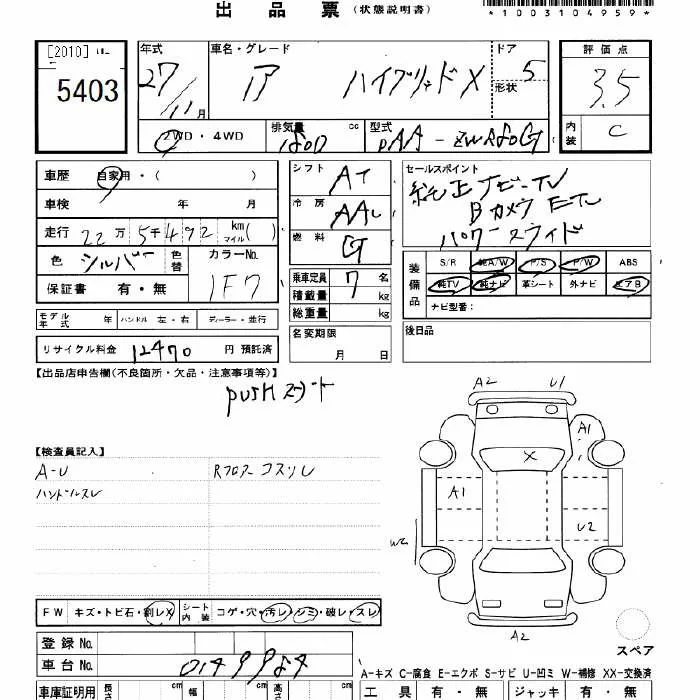 出品票 (状態説明書)
*1003104959*
[2010]
5403
年式 27/11月
車名・グレード ア ハイブリッドX
ドア 形状 5
評価点 3.5
2WD・4WD
排気量 1800 cc
型式 DAA-ZWR80G
内装 C
車歴 自家用・( )
車検 年 月
走行 22万5千492 km マイル( )
色 シルバー 色替
カラーNo. 1F7
保証書 有・無
シフト AT
冷房 AAC
燃料 G
乗車定員 7 名
積載量 kg
総重量 kg
セールスポイント
純正ナビ-TV
BカメラETC
パワースライド
装備品
S/R 純A/W P/S P/W ABS
純TV 純ナビ 革シート 外ナビ エアB
ナビ型番:
モデル年式 年 ハンドル 左・右 ディーラー・並行
名変期限 月 日
後日品
リサイクル料金 12470 円 預託済
【出品店申告欄(不良箇所・欠品・注意事項等)】
pushスタート
A2 U1
A1
X
【検査員記入】
A-U
Rフロアーコスリ
ハンドルスレ
A1
U2
W2
A2
FW キズ・トビ石・割レX
シート内装 コゲ・穴・汚レ・シミ・破レ・スレ
スペア
登録No.
車台No. 0149984
A-キズ C-腐食 E-エクボ S-サビ U-凹ミ W-補修 XX-交換済
車庫証明用 長さ cm 幅 cm 高 cm
工具 有・無 ジャッキ 有・無